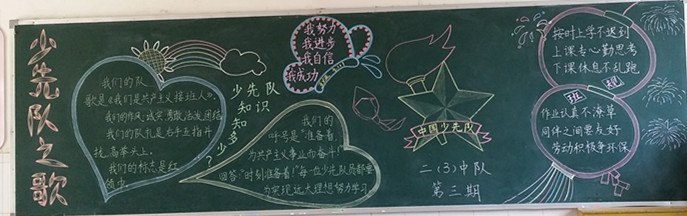 少先队之歌
我们的队
歌是《我们是共产主义接班人》,
我们的作风:诚实、勇敢、活泼、团结
我们的队礼是右手五指并
拢,高举头上。
我们的标志是红
领巾。
少先队知识知多少?
我努力
我进步
我自信
我成功
我们的
呼号是"准备着,
为共产主义事业而奋斗!"
回答:"时刻准备着!"每一位少先队员都要
为实现远大理想努力学习
中国少先队
二(3)中队
第三期
按时上学不迟到
上课专心勤思考
下课休息不乱跑
班规
作业认真不潦草
同伴之间要友好
劳动积极争环保